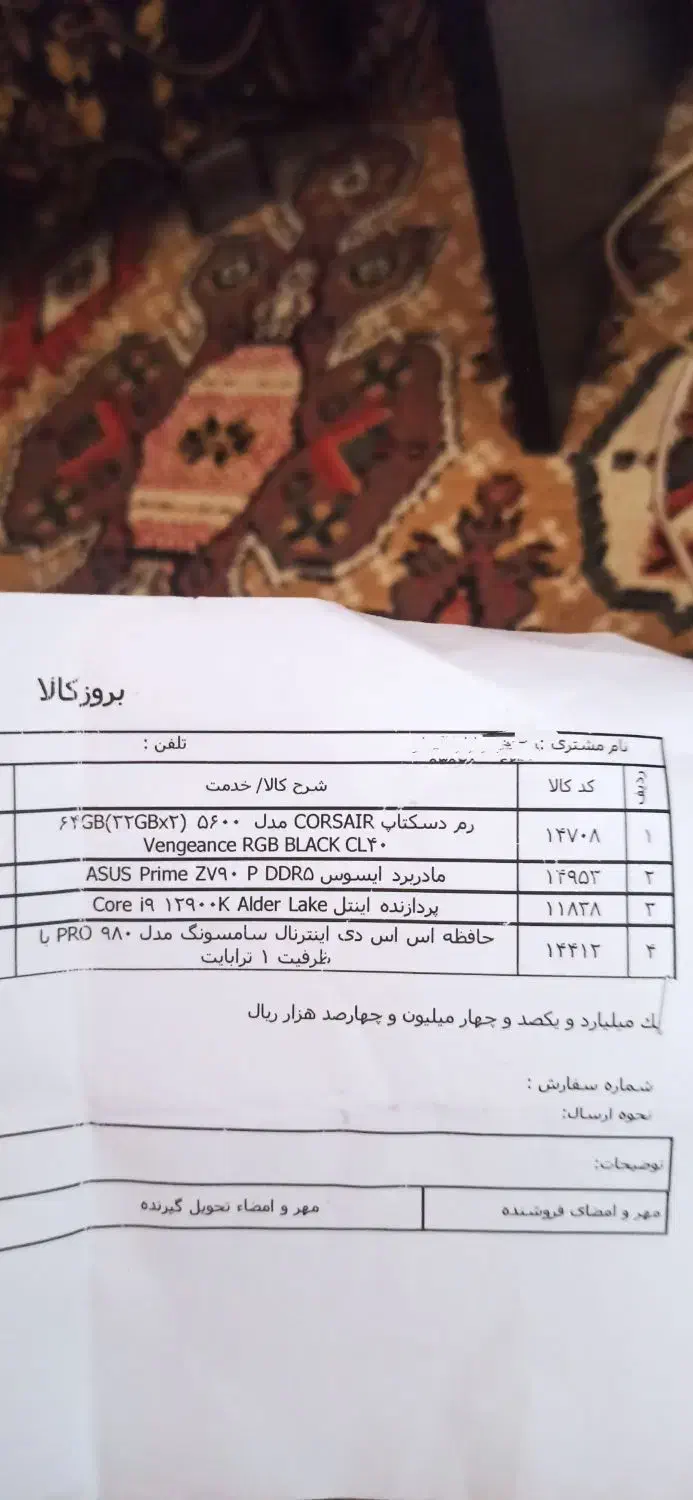 بروزکالا
نام مشتری :
تلفن :
ردیف
کد کالا
شرح کالا/ خدمت
۱
۱۴۷۰۸
رم دسکتاپ CORSAIR مدل ۵۶۰۰ ۶۴GB(۳۲GBx۲)
Vengeance RGB BLACK CL۴۰
۲
۱۴۹۵۳
مادربرد ایسوس ASUS Prime Z۷۹۰ P DDR۵
۳
۱۱۸۳۸
پردازنده اینتل Core i۹ ۱۲۹۰۰K Alder Lake
۴
۱۴۴۱۲
حافظه اس اس دی اینترنال سامسونگ مدل ۹۸۰ PRO با
ظرفیت ۱ ترابایت
یك میلیارد و یکصد و چهار میلیون و چهارصد هزار ریال
شماره سفارش :
نحوه ارسال:
توضیحات:
مهر و امضای فروشنده
مهر و امضاء تحویل گیرنده